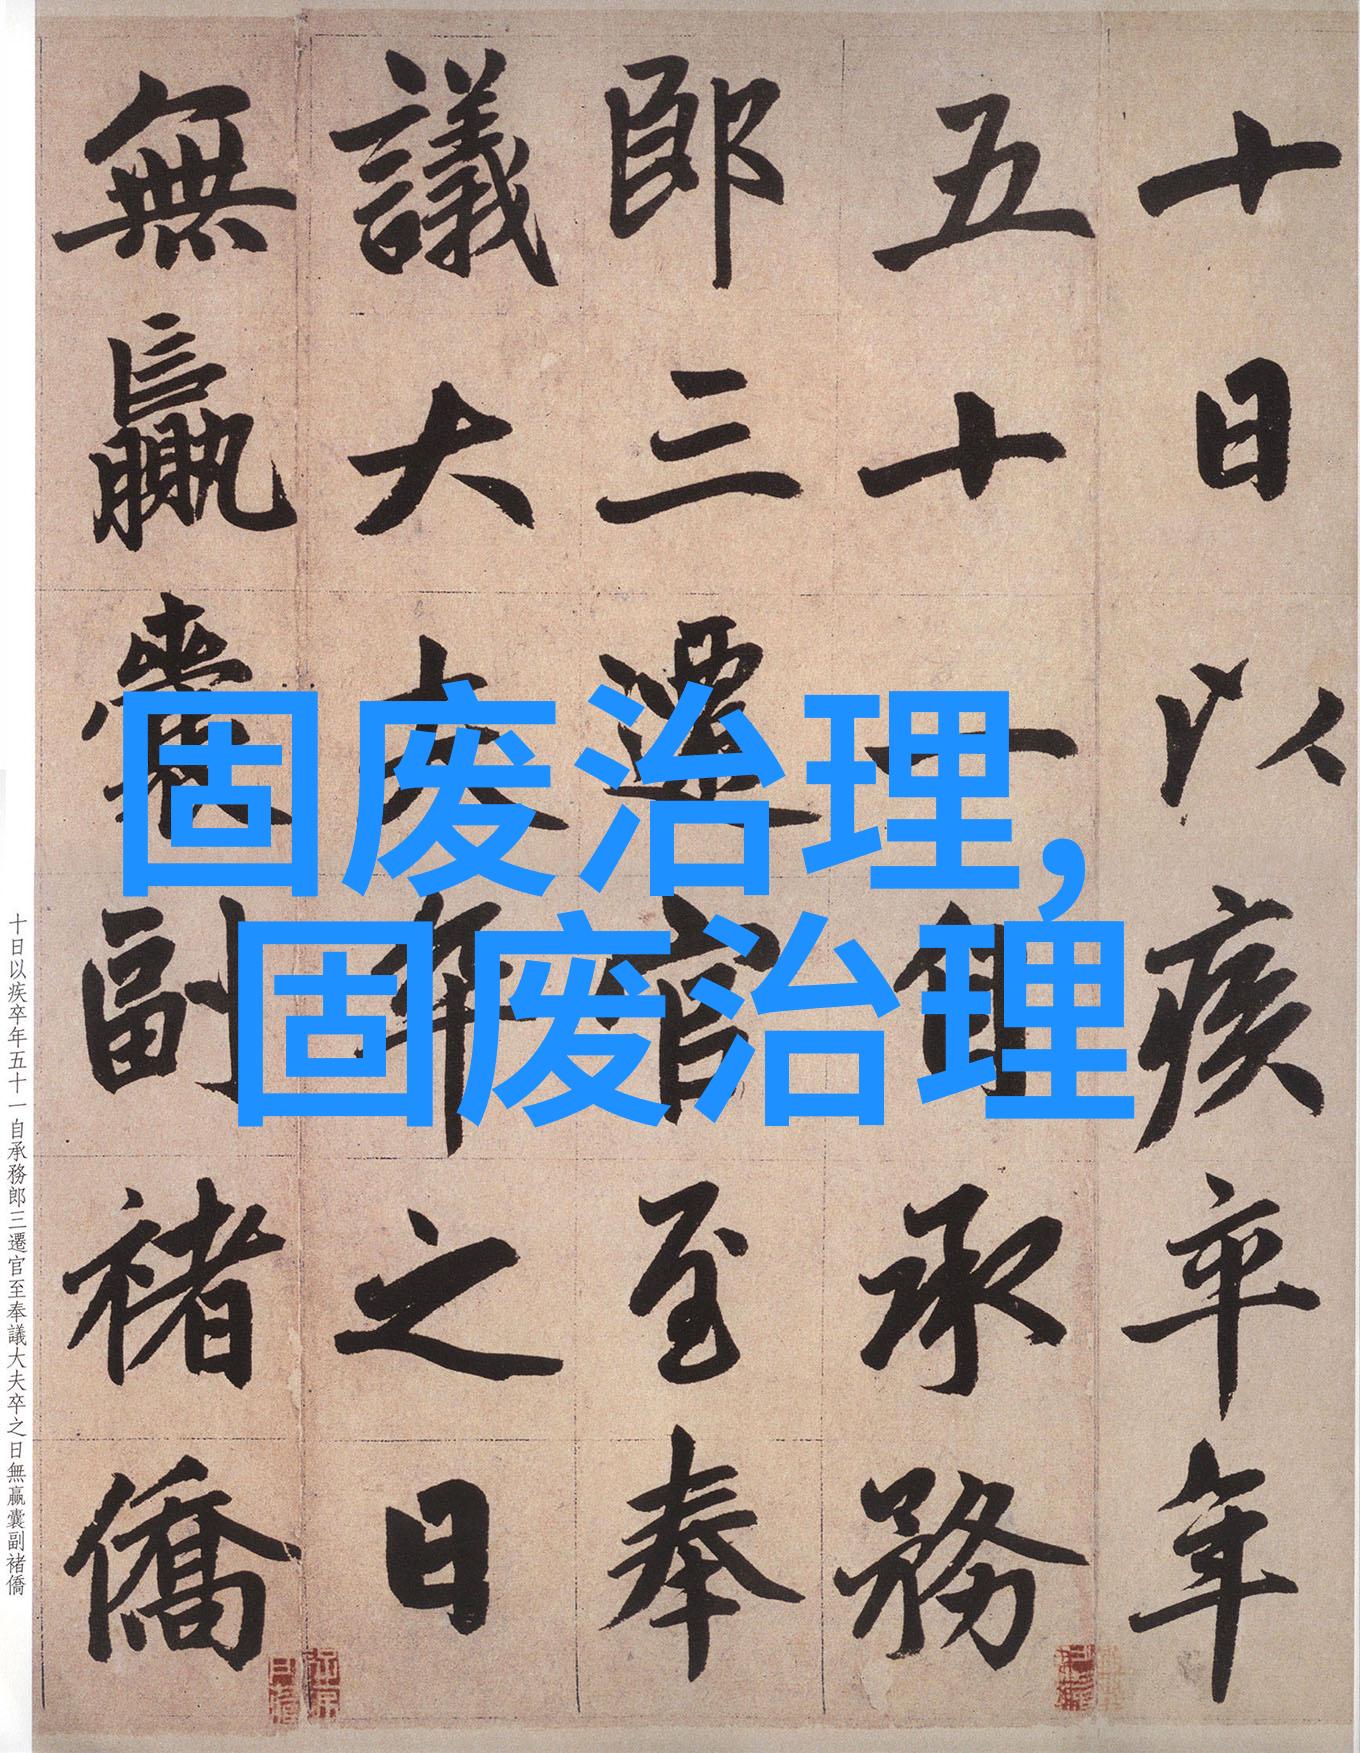 十日以疾卒年
五十一自承務
郎三遷官至奉
議大夫卒之日
無贏囊副褚僑
固废治理，
固废治理
十日以疾卒年五十一自承務郎三遷官至奉議大夫卒之日無贏囊副褚僑